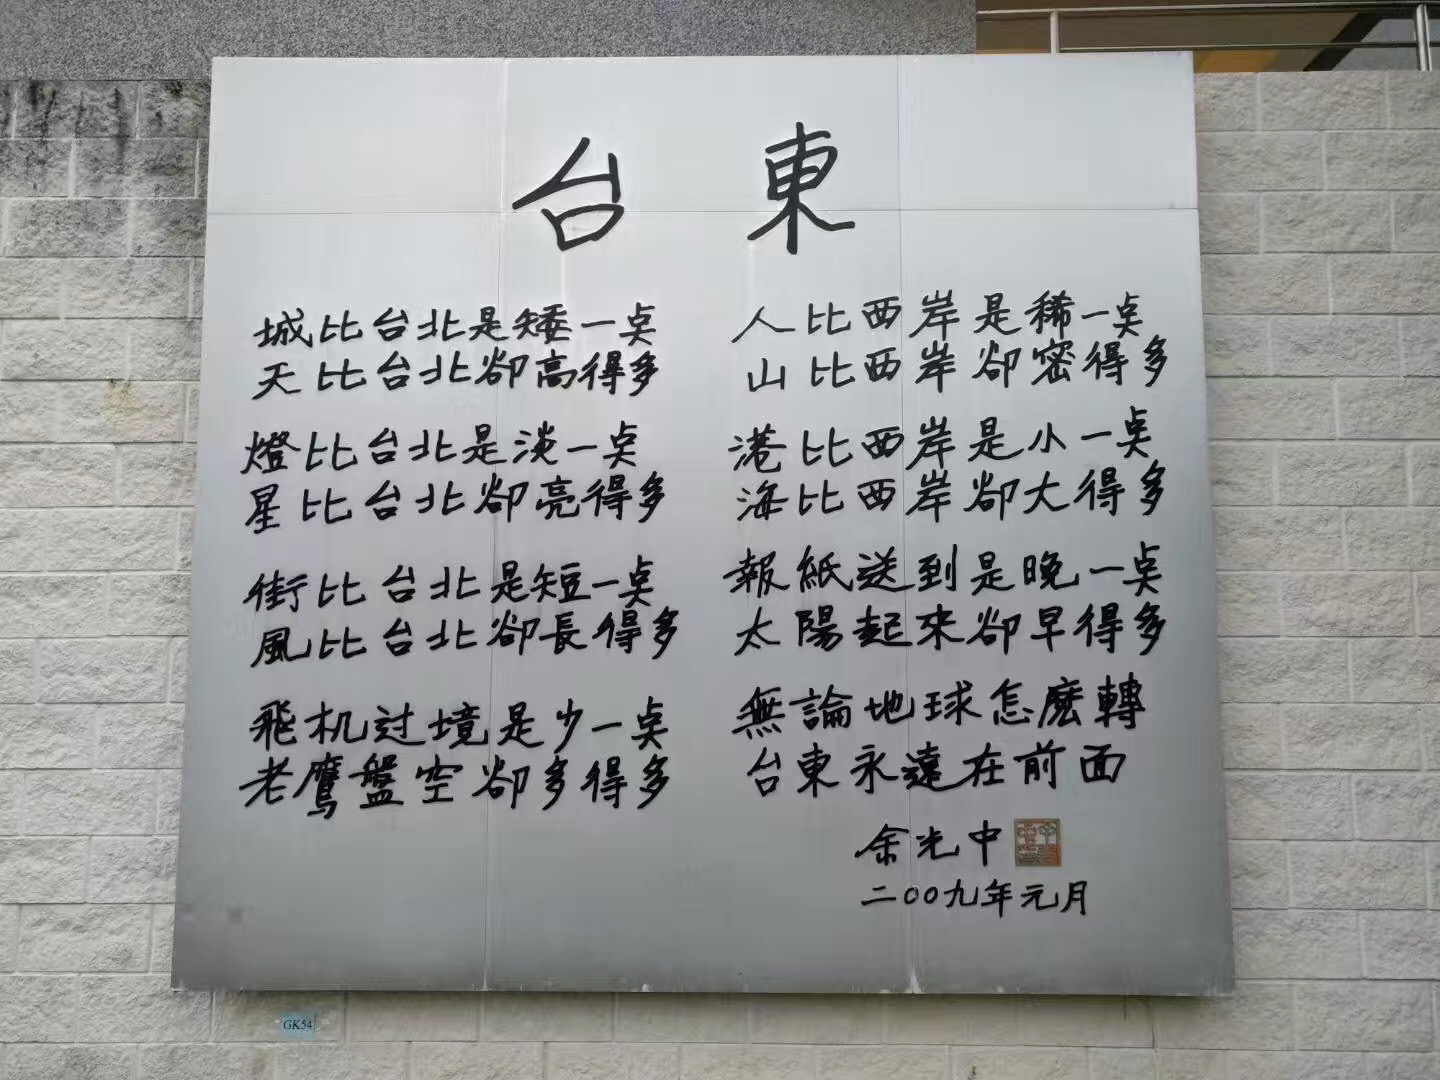 台東
城比台北是矮一点
天比台北卻高得多
燈比台北是淡一点
星比台北卻亮得多
街比台北是短一点
風比台北卻長得多
飛机过境是少一点
老鷹盤空卻多得多
人比西岸是稀一点
山比西岸卻密得多
港比西岸是小一点
海比西岸卻大得多
報紙送到是晚一点
太陽起來卻早得多
無論地球怎麽轉
台東永遠在前面
余光中
二〇〇九年元月
GK54